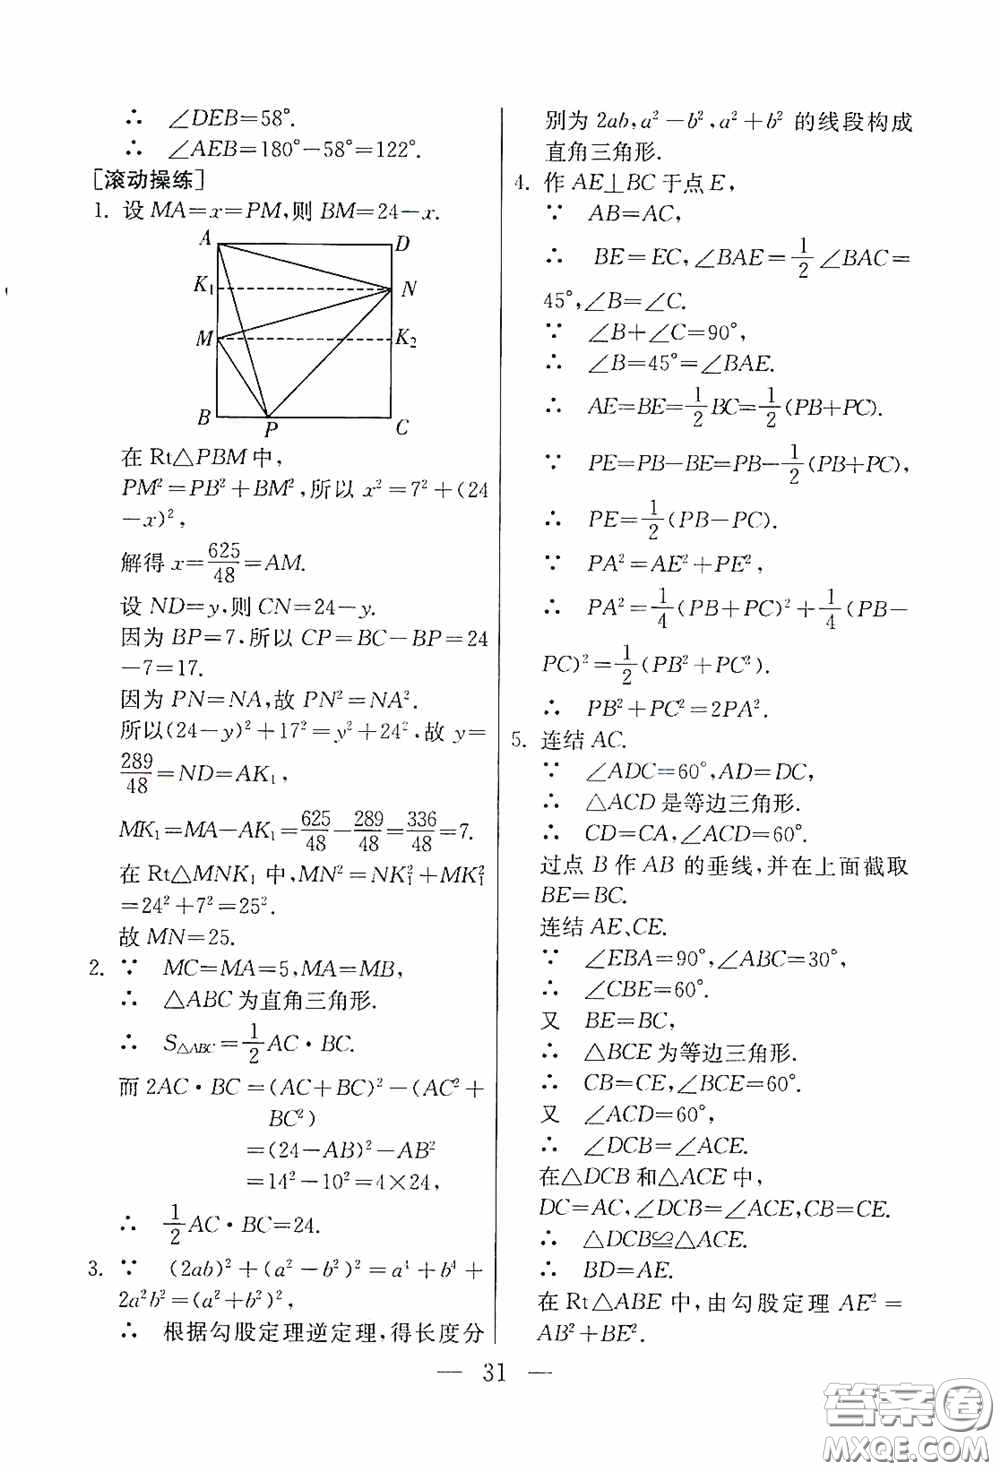 ∴ ∠DEB=58°.
∴ ∠AEB=180°-58°=122°.
[滚动操练]
1. 设 MA=x=PM,则 BM=24-x.
A D
K₁ N
M K₂
B P C
在 Rt△PBM 中,
PM²=PB²+BM²,所以 x²=7²+(24
-x)²,
解得 x=625/48=AM.
设 ND=y,则 CN=24-y.
因为 BP=7,所以 CP=BC-BP=24
-7=17.
因为 PN=NA,故 PN²=NA².
所以(24-y)²+17²=y²+24²,故 y=
289/48=ND=AK₁,
MK₁=MA-AK₁=625/48-289/48=336/48=7.
在 Rt△MNK₁ 中,MN²=NK₁²+MK₁²
=24²+7²=25².
故 MN=25.
2. ∵ MC=MA=5,MA=MB,
∴ △ABC 为直角三角形.
∴ S△ABC=1/2 AC·BC.
而 2AC·BC=(AC+BC)²-(AC²+
BC²)
=(24-AB)²-AB²
=14²-10²=4×24,
∴ 1/2 AC·BC=24.
3. ∵ (2ab)²+(a²-b²)²=a⁴+b⁴+
2a²b²=(a²+b²)²,
∴ 根据勾股定理逆定理,得长度分
别为 2ab,a²-b²,a²+b² 的线段构成
直角三角形.
4. 作 AE⊥BC 于点 E,
∵ AB=AC,
∴ BE=EC,∠BAE=1/2∠BAC=
45°,∠B=∠C.
∵ ∠B+∠C=90°,
∴ ∠B=45°=∠BAE.
∴ AE=BE=1/2 BC=1/2(PB+PC).
∵ PE=PB-BE=PB-1/2(PB+PC),
∴ PE=1/2(PB-PC).
∵ PA²=AE²+PE²,
∴ PA²=1/4(PB+PC)²+1/4(PB-
PC)²=1/2(PB²+PC²).
∴ PB²+PC²=2PA².
5. 连结 AC.
∵ ∠ADC=60°,AD=DC,
∴ △ACD 是等边三角形.
∴ CD=CA,∠ACD=60°.
过点 B 作 AB 的垂线,并在上面截取
BE=BC.
连结 AE、CE.
∵ ∠EBA=90°,∠ABC=30°,
∴ ∠CBE=60°.
又 BE=BC,
∴ △BCE 为等边三角形.
∴ CB=CE,∠BCE=60°.
又 ∠ACD=60°,
∴ ∠DCB=∠ACE.
在△DCB 和△ACE 中,
DC=AC,∠DCB=∠ACE,CB=CE.
∴ △DCB≌△ACE.
∴ BD=AE.
在 Rt△ABE 中,由勾股定理 AE²=
AB²+BE².
— 31 —
答案圈
MXQE.COM